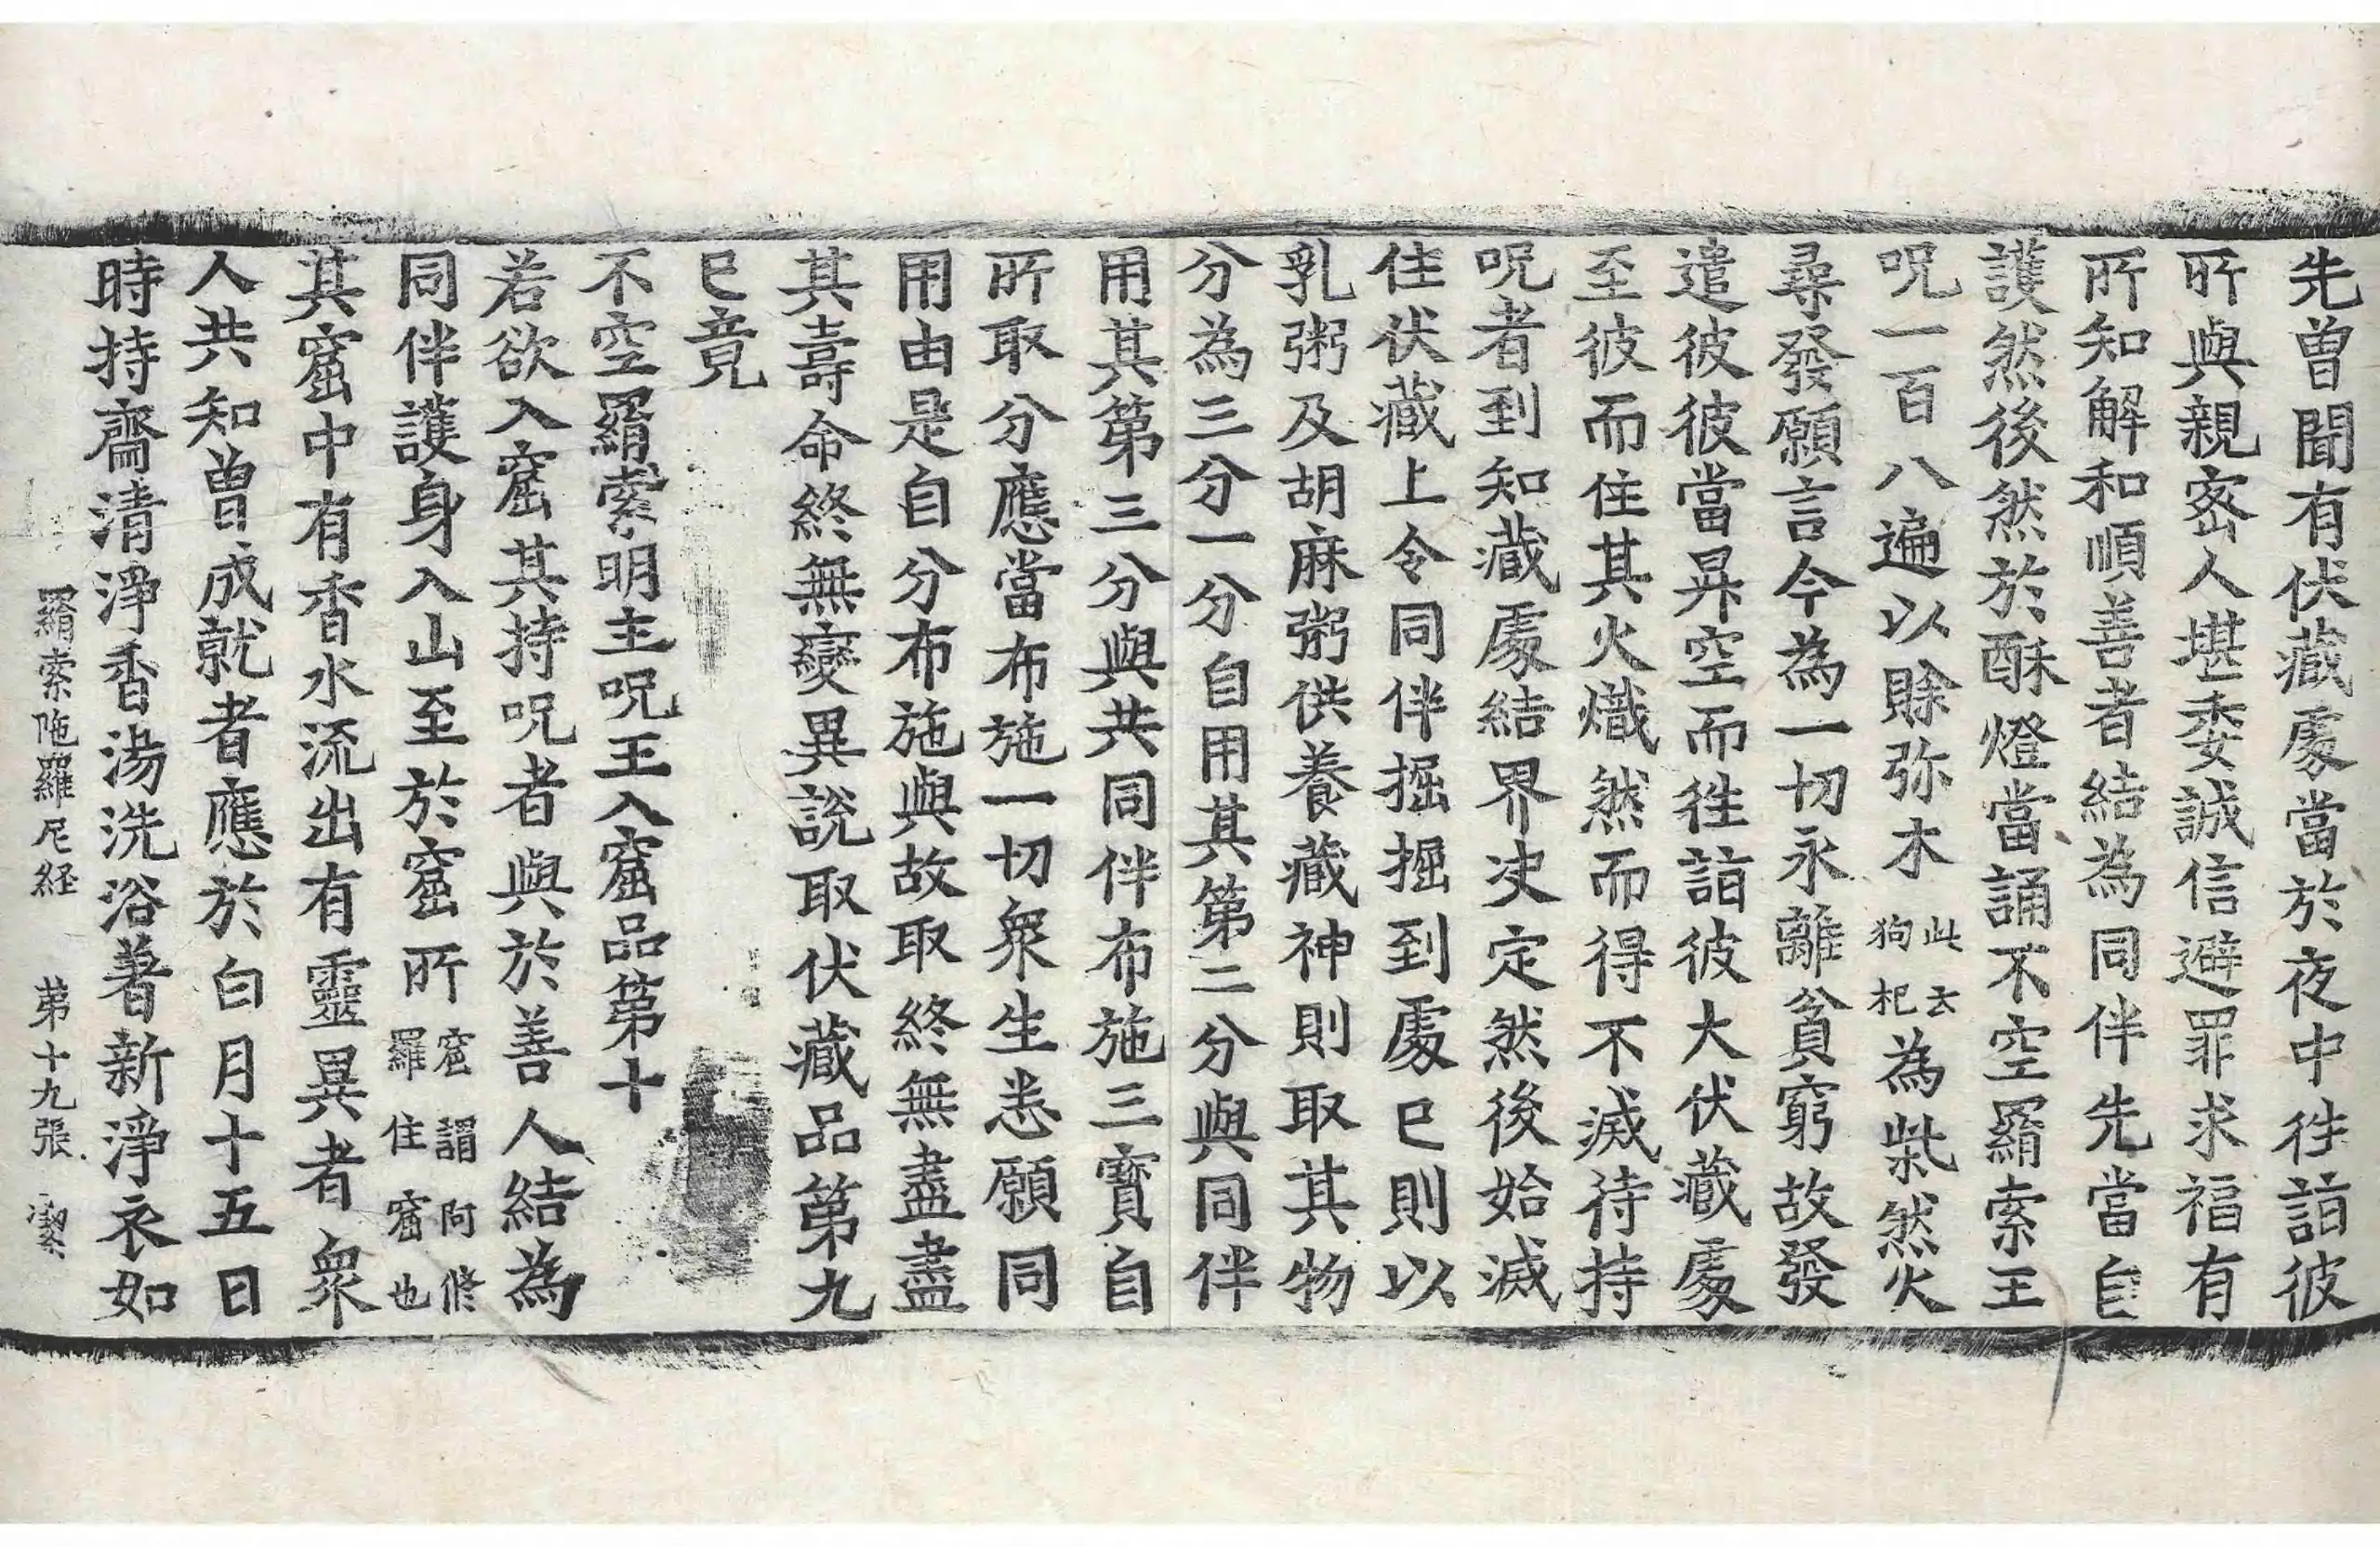 先曾聞有伏藏處當於夜中徃詣彼
所與親密人堪委誠信避罪求福有
所知解和順善者結為同伴先當自
護然後然於酥燈當誦不空羂索王
呪一百八遍以賖弥木此云狗杞為柴然火
尋發願言今為一切永離貧窮故發
遣彼彼當昇空而徃詣彼大伏藏處
至彼而住其火熾然而得不滅待持
呪者到知藏處結界决定然後始滅
住伏藏上令同伴掘掘到處已則以
乳粥及胡麻粥供養藏神則取其物
分為三分一分自用其第二分與同伴
用其第三分與共同伴布施三寶自
所取分應當布施一切衆生悉願同
用由是自分布施與故取終無盡盡
其壽命終無變異說取伏藏品第九
已竟
不空羂索明主呪王入窟品第十
若欲入窟其持呪者與於善人結為
同伴護身入山至於窟所窟謂阿修羅住窟也
其窟中有香水流出有靈異者衆
人共知曾成就者應於白月十五日
時持齋清淨香湯洗浴著新淨衣如
羂索陁羅尼経 苐十九張 潔